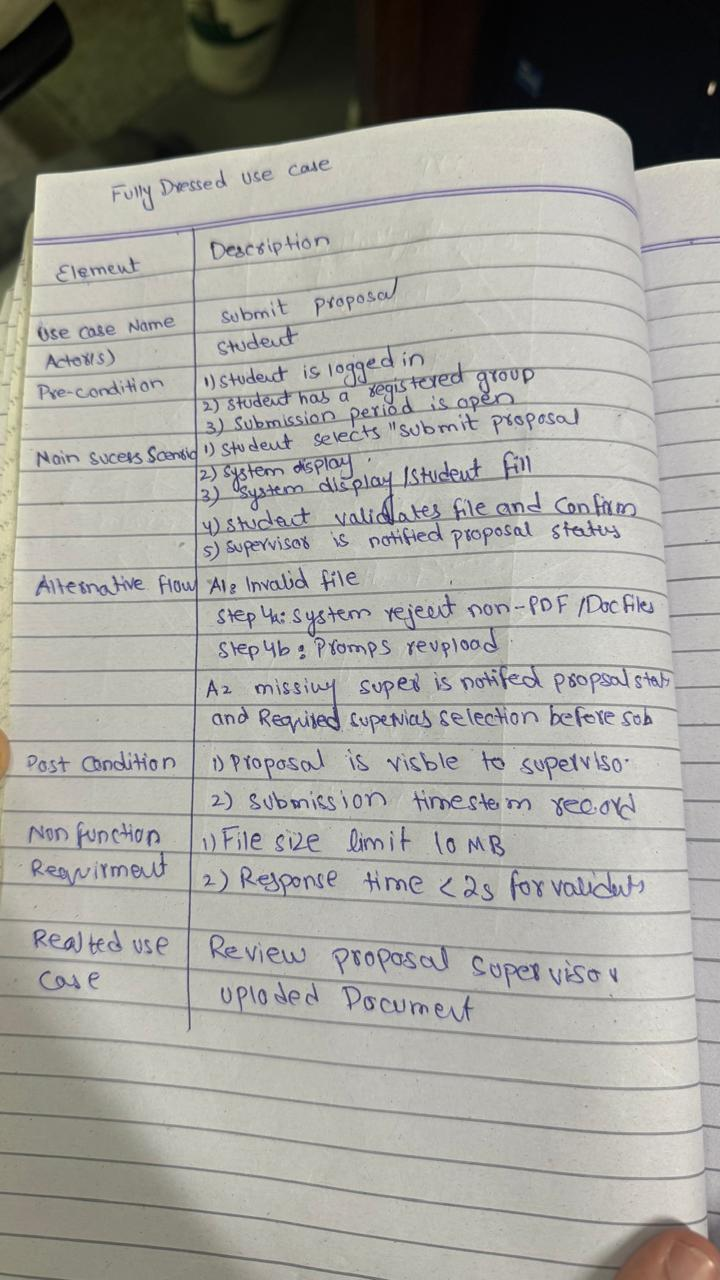 Fully Dressed use case
Element Description
Use case Name submit proposal
Actor(s) student
Pre-condition 1) Student is logged in
2) student has a registered group
3) Submission period is open
Main sucess Scenario 1) Student selects "submit proposal
2) System display
3) System display /student fill
4) student validates file and Confirm
5) supervisor is notified proposal status
Alternative flow A1: Invalid file
Step 4a: System reject non-PDF /Doc files
Step 4b: Promps reupload
A2 missing super is notifed propsal stat
and Required supervias selection before sob
Post Condition 1) Proposal is visble to superviso
2) Submission timestem record
Non function 1) File size limit 10 MB
Requirment 2) Response time < 2s for validats
Realted use Review proposal supervisor
case uploded Document